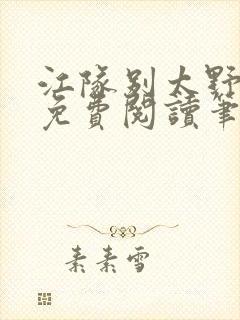 江隊別太野
免費閱讀筆
素素雪